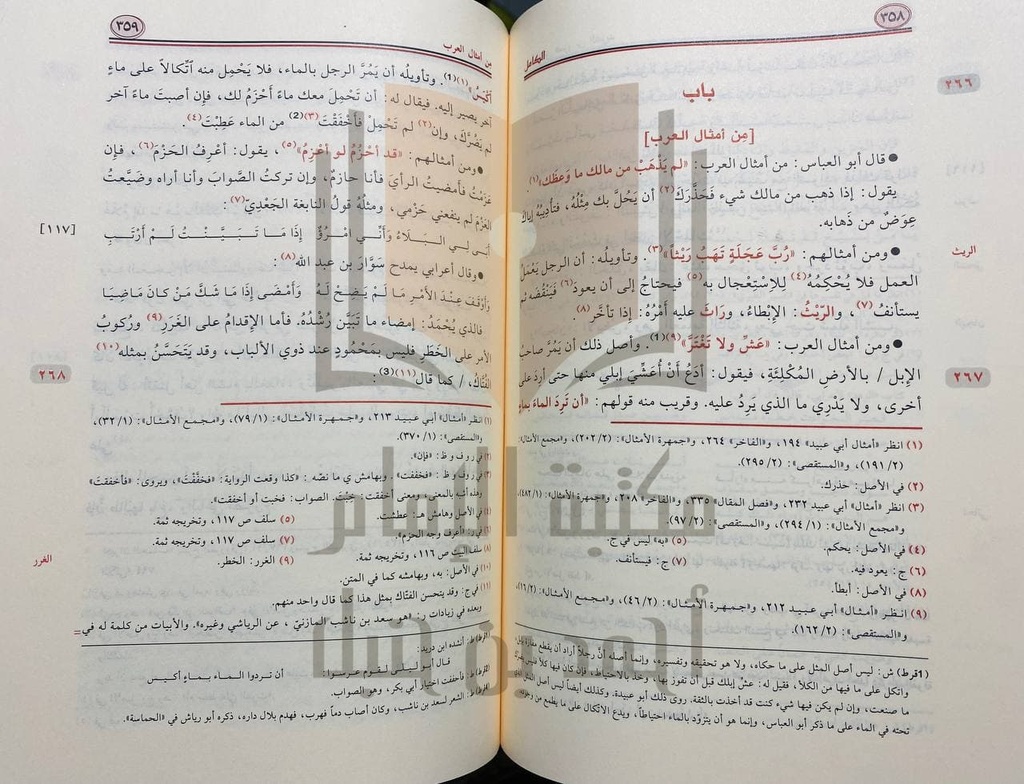 ٣٥٨
الكامل
٢٦٦
باب
[مِن أمثال العرب]
● قال أبو العباس: من أمثال العرب: «لم يَذْهَبْ من مالك ما وَعظك»(١)
يقول: إذا ذهب من مالك شيء فَحَذَّرَكَ(٢) أن يَحُلَّ بك مِثْلُهُ، فتأديبُهُ إياك
عِوَضٌ من ذَهابه.
● ومن أمثالهم: «رُبَّ عَجَلَةٍ تَهَبُ رَيْثاً»(٣). وتأويله: أن الرجل يَعْمَلُ
الريث
العمل فلا يُحْكِمُهُ(٤) لِلِاسْتِعْجال به(٥) فيحتاجُ إلى أن يعودَ(٦) فَيَنْقُضَه ثم
يستأنفُ(٧)، والرَّيْثُ: الإبْطاءُ، ورَاثَ عليه أمْرُهُ: إذا تأخَّر(٨).
● ومن أمثال العرب: «عَشِّ ولا تَغْتَرَّ»(٩)(1). وأصل ذلك أن يَمُرَّ صاحبُ
٢٦٧
الإبل / بالأرضِ المُكْلِئَةِ، فيقول: أدَعُ أنْ أُعَشِّيَ إبلي منها حتى أرِدَ على
أخرى، ولا يَدْرِي ما الذي يَرِدُ عليه. وقريب منه قولهم: «أن تَرِدَ الماءَ بماءٍ
(١) انظر «أمثال أبي عبيد» ١٩٤، و«الفاخر» ٢٦٤، و«جمهرة الأمثال»: (٢٠٢/٢)، و«مجمع الأمثال»:
(١٩١/٢)، و«المستقصى»: (٢٩٥/٢).
(٢) في الأصل: حذرك.
(٣) انظر «أمثال أبي عبيد» ٢٣٢، و«فصل المقال» ٣٣٥، و«الفاخر» ٢٠٨، و«جمهرة الأمثال»: (٤٨٢/١)،
و«مجمع الأمثال»: (٢٩٤/١)، و«المستقصى»: (٩٧/٢).
(٤) في الأصل: يحكم. (٥) «به» ليس في ج.
(٦) ج: يعود فيه. (٧) ج: فيستأنف.
(٨) في الأصل: أبطأ.
(٩) انظر «أمثال أبي عبيد» ٢١٢، و«جمهرة الأمثال»: (٤٦/٢)، و«مجمع الأمثال»: (١٦/٢)،
و«المستقصى»: (١٦٢/٢).
(1قرط) ش: ليس أصل المثل على ما حكاه، ولا هو تحقيقه وتفسيره، وإنما أصله أنَّ رجلاً أراد أن يقطع مفازة
واتكل على ما فيها من الكلأ، فقيل له: عشِّ إبلك قبل أن تفوز بها، وخذ بالاحتياط، فإن كان فيها كلأ فليس يضرك
ما صنعت، وإن لم يكن فيها شيء كنت قد أخذت بالثقة. روى ذلك أبو عبيدة. وكذلك أيضاً ليس أصل المثل
تحته في الماء على ما ذكر أبو العباس، وإنما هو أن يتزوَّد بالماء احتياطاً، ويدع الاتكال على ما يطمع من وجوده
٣٥٩
مِن أمثال العرب
أكْيَسُ»(١)(1). وتأويلُه أن يَمُرَّ الرجل بالماء، فلا يَحْمِل منه اتِّكالاً على ماءٍ
آخر يصير إليه. فيقال له: أن تَحْمِلَ معك ماءً أحْزَمُ لك، فإن أصبتَ ماءً آخر
لم يَضُرَّك، وإن(٢) لم تَحْمِلْ فأخْفَقْتَ(٣)(2) من الماء عَطِبْتَ(٤).
● ومن أمثالهم: «قد أحْزُمُ لو أعْزِمُ»(٥)، يقول: أعْرِفُ الحَزْمَ(٦)، فإن
عَزَمْتُ فأمضيتُ الرأيَ فأنا حازِمٌ، وإن تركتُ الصَّوابَ وأنا أراه وضَيَّعتُ
العَزْمَ لم ينفعني حَزْمي، ومثلُه قولُ النابغة الجَعْدِيّ(٧):
أبَى لِي البَلَاءُ وَأنِّي امْرُؤٌ إذَا مَا تَبَيَّنْتُ لَمْ أرْتَبِ
[١١٧]
● وقال أعرابي يمدح سَوَّارَ بن عبد الله(٨):
وَأوْقَفُ عِنْدَ الأمْرِ مَا لَمْ يَتَّضِحْ لَهُ وَأمْضَى إذَا مَا شَكَّ مَنْ كانَ مَاضِيَا
فالذي يُحْمَدُ: إمضاء ما تَبَيَّن رُشْدُهُ. فأما الإقدامُ على الغَرَرِ(٩) ورُكوبُ
الأمر على الخَطَرِ فليس بمَحْمُودٍ عند ذوي الألباب، وقد يَتَحَسَّنُ بمثله(١٠)
٢٦٨
الفُتَّاكُ، / كما قال(١١)(3):
(١) انظر «أمثال» أبي عبيد ٢١٣، و«جمهرة الأمثال»: (٧٩/١)، و«مجمع الأمثال»: (٣٢/١)،
و«المستقصى»: (٣٧٠/١).
(٢) في ر و ف و ظ: «فإن».
(٣) في ر و ف و ظ: «فخففت». وبهامش ي ما نصّه: «كذا وقعت الرواية: فخفَّقْتَ»، ويروى: «فأخفقت»
وهذه أشبه بالمعنى، ومعنى أخفقت: خبتَ. الصواب: فخبت أو أخفقت.
(٤) في الأصل وهامش هـ: عطشت. (٥) سلف ص ١١٧، وتخريجه ثمة.
(٦) في ر: «أعرف وجه الحزم». (٧) سلف ص ١١٧، وتخريجه ثمة.
(٨) سلف البيت ص ١١٦، وتخريجه ثمة. (٩) الغرر: الخطر.
الغرر
(١٠) في الأصل: به، وبهامشه كما في المتن.
(١١) في ج: وقد يتحسن الفتاك بمثل هذا كما قال واحد منهم.
وبعده في زيادات ر: «هو سعد بن ناشب المازنيّ، عن الرياشي وغيره». والأبيات من كلمة له في=
(1قرط) ط: أنشده ابن دريد:
قال أبو ليلى لقوم عرسوا: أن تردوا الماء بماءٍ أكيس
(2قرط) ط: فأخفقت اختيار أبي بكر، وهو الصواب.
(3قرط) ط: الشعر لسعد بن ناشب، وكان أصاب دماً فهرب، فهدم بلال داره، ذكره أبو رياش في «الحماسة».
مكتبة الإمام